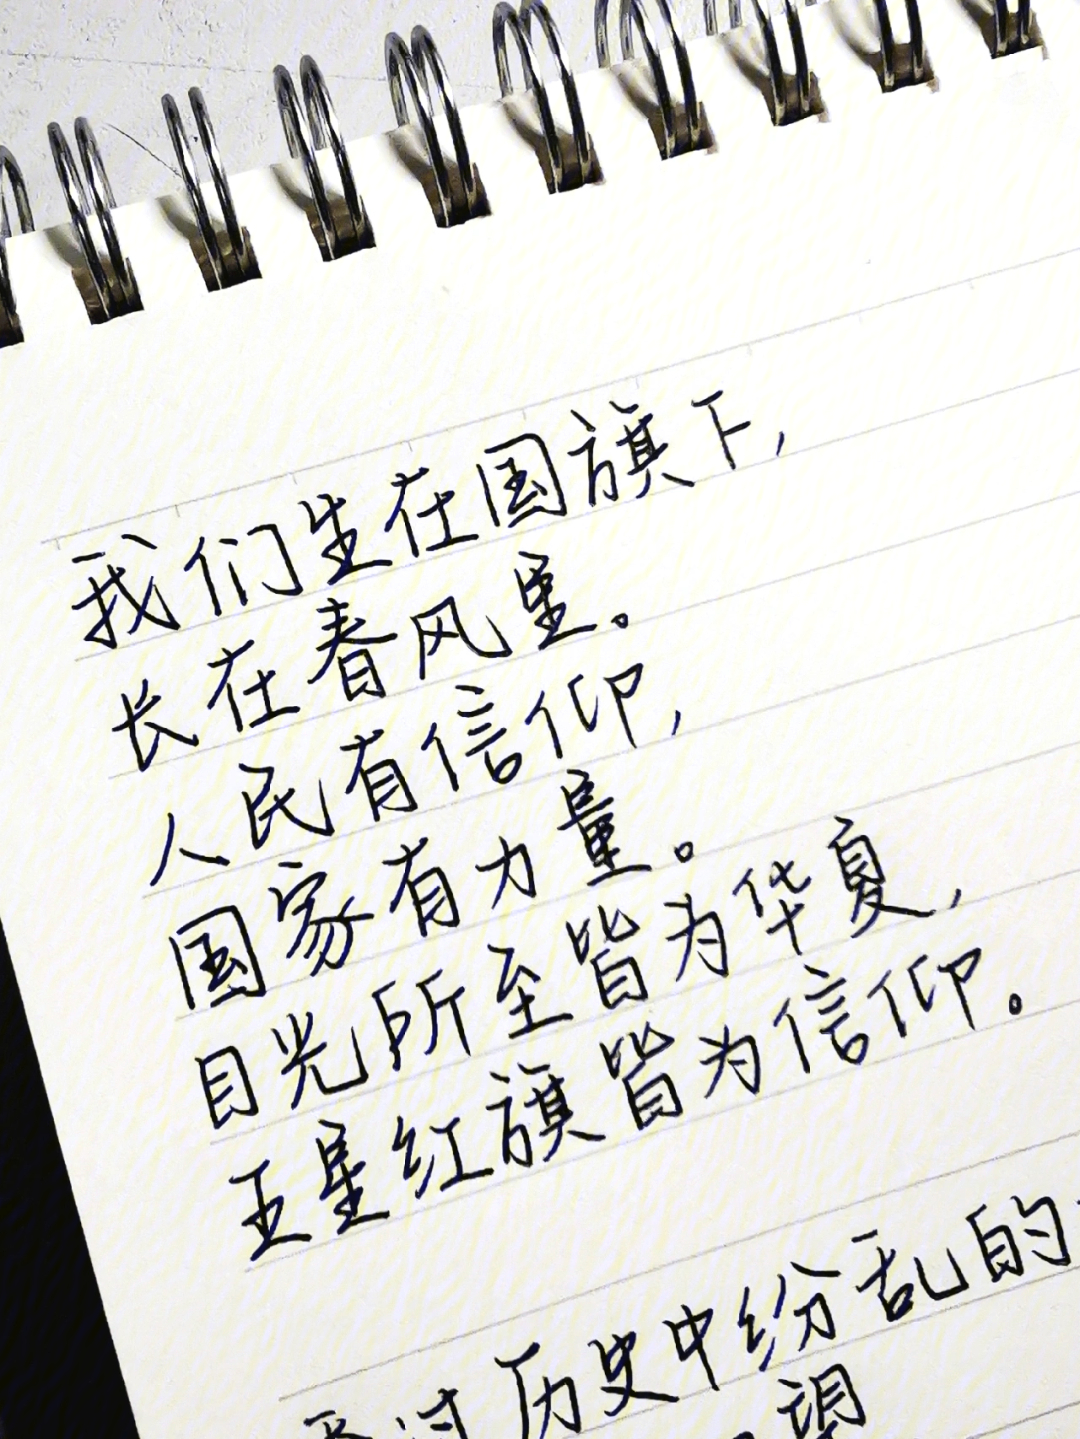 我们生在国旗下,
长在春风里。
人民有信仰,
国家有力量。
目光所至皆为华夏,
五星红旗皆为信仰。
历史中纷乱的